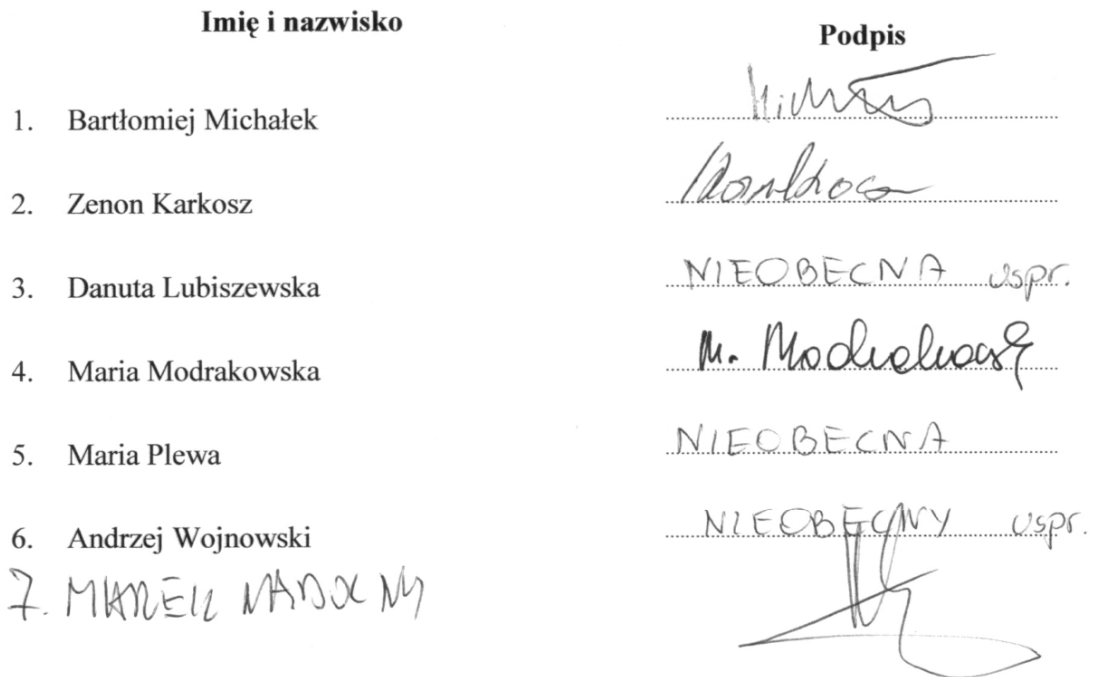 Imię i nazwisko Podpis
1. Bartłomiej Michałek
2. Zenon Karkosz
3. Danuta Lubiszewska NIEOBECNA uspr.
4. Maria Modrakowska M. Modrakowska
5. Maria Plewa NIEOBECNA
6. Andrzej Wojnowski NIEOBECNY uspr.
7. MAREK